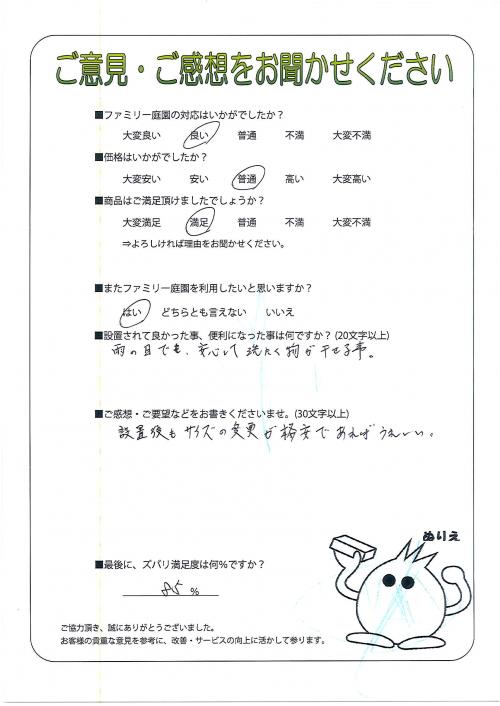 ご意見・ご感想をお聞かせください
■ファミリー庭園の対応はいかがでしたか？
大変良い 良い 普通 不満 大変不満
■価格はいかがでしたか？
大変安い 安い 普通 高い 大変高い
■商品はご満足頂けましたでしょうか？
大変満足 満足 普通 不満 大変不満
⇒よろしければ理由をお聞かせください。
■またファミリー庭園を利用したいと思いますか？
はい どちらとも言えない いいえ
■設置されて良かった事、便利になった事は何ですか？(20文字以上)
雨の日でも、安心して洗たく物が干せる事。
■ご感想・ご要望などをお書きくださいませ。(30文字以上)
設置後もサイズの変更が格安であればうれしい。
ぬりえ
■最後に、ズバリ満足度は何％ですか？
％
ご協力頂き、誠にありがとうございました。
お客様の貴重な意見を参考に、改善・サービスの向上に活かして参ります。